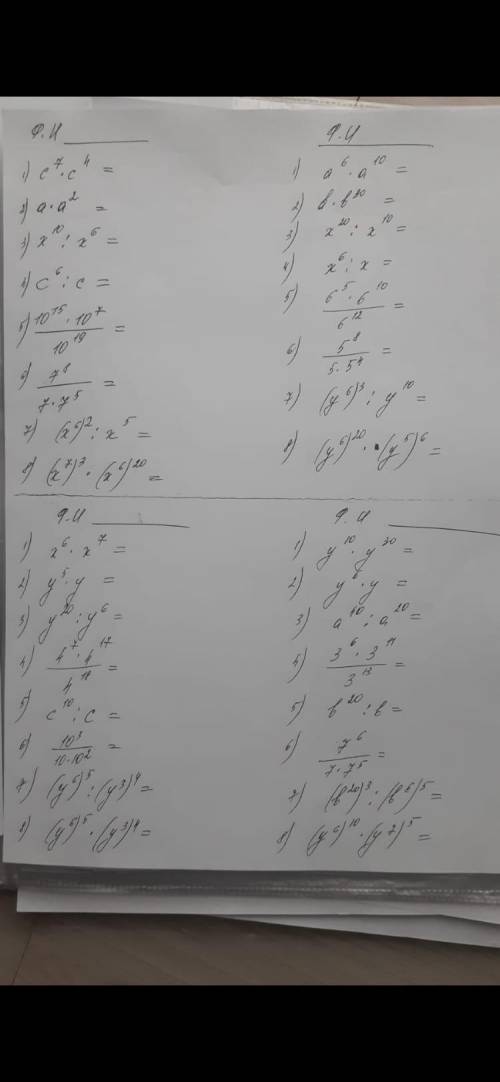 Ф.И
1) c⁷·c⁴ =
2) a·a² =
3) x¹⁰ : x⁶ =
4) c⁶ : c =
5) 10¹⁵·10⁷ / 10¹⁹ =
6) 7⁸ / 7·7⁵ =
7) (x⁶)² : x⁵ =
8) (x⁷)³·(x⁶)²⁰ =
Ф.И
1) a⁶·a¹⁰ =
2) b·b²⁰ =
3) x²⁰ : x¹⁰ =
4) x⁶ : x =
5) 6⁵·6¹⁰ / 6¹² =
6) 5⁸ / 5·5⁴ =
7) (y⁶)³ : y¹⁰ =
8) (y⁶)²⁰·(y⁵)⁶ =
Ф.И
1) x⁶·x⁷ =
2) y⁵·y =
3) y²⁰ : y⁶ =
4) 4⁷·4¹² / 4¹⁸ =
5) c¹⁰ : c =
6) 10³ / 10·10² =
7) (y⁶)⁵ : (y³)⁴ =
8) (y⁶)⁵·(y³)⁴ =
Ф.И
1) y¹⁰·y³⁰ =
2) y⁶·y =
3) a⁴⁰ : a²⁰ =
4) 3⁶·3¹¹ / 3¹³ =
5) b²⁰ : b =
6) 7⁶ / 7·7⁵ =
7) (b²⁰)³ : (b⁶)⁵ =
8) (y⁶)¹⁰·(y²)⁵ =